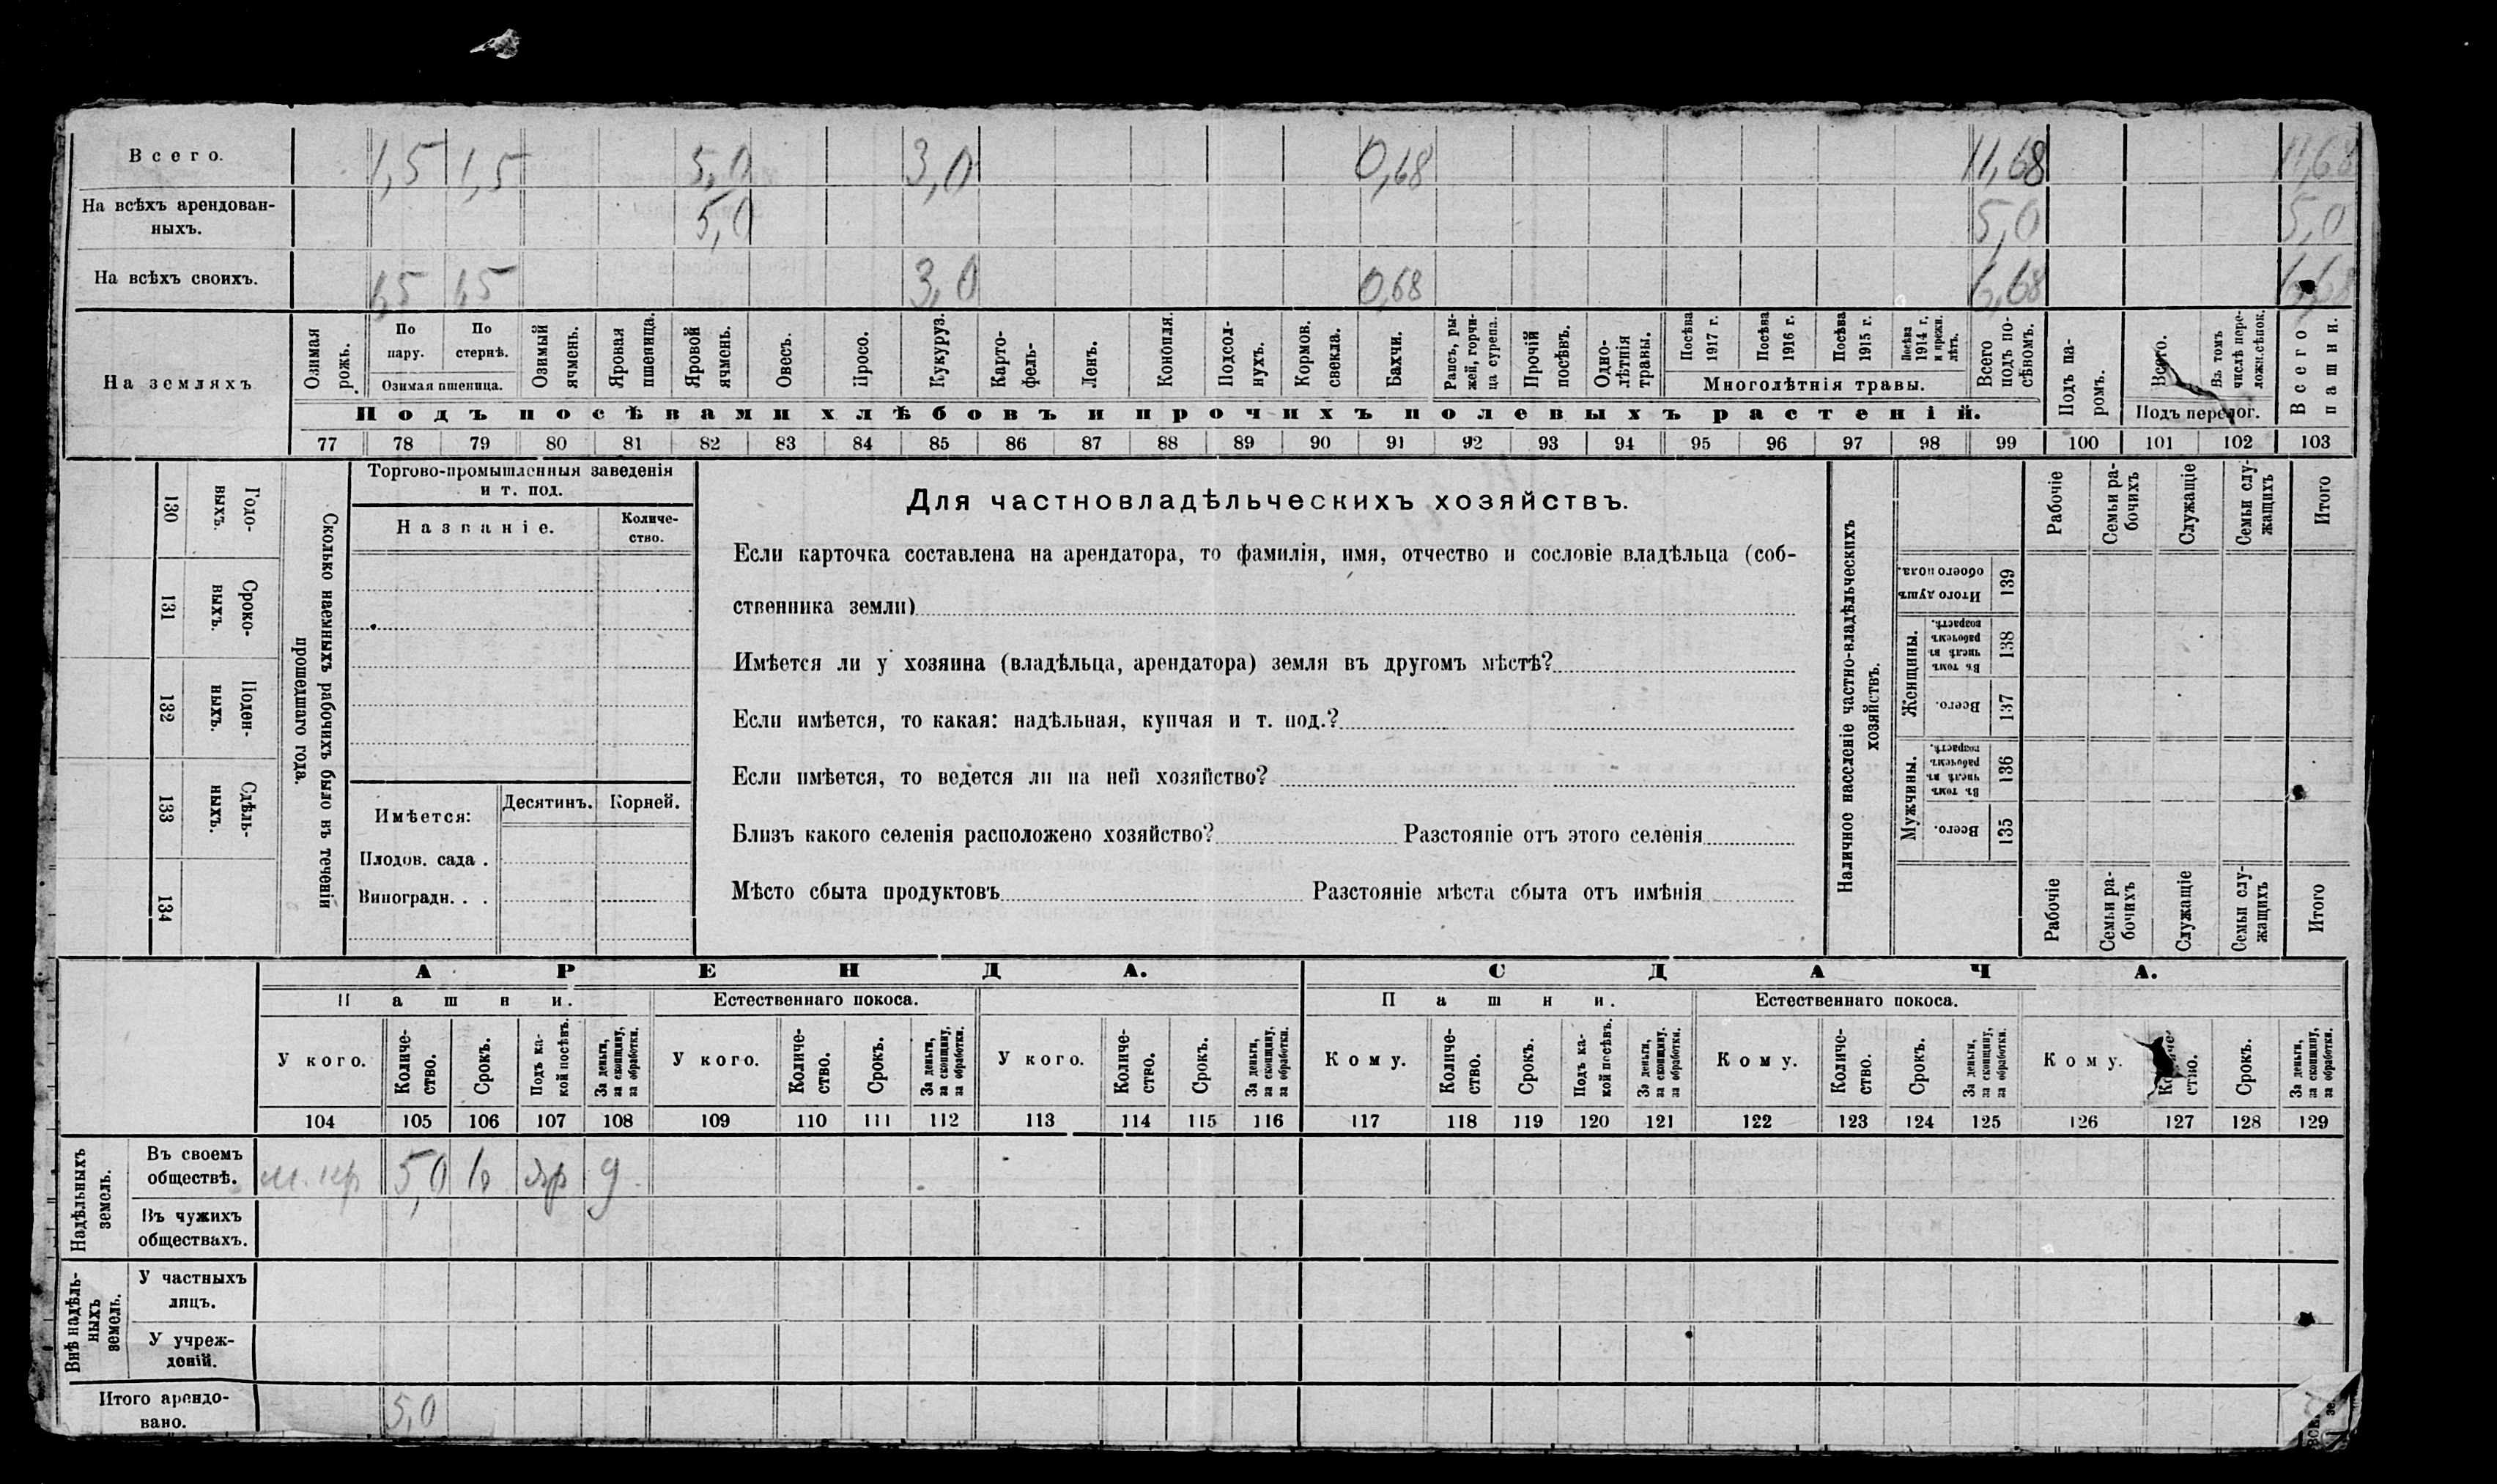 Всего. 1,5 1,5 5,0 3,0 0,68 11,68 11,68
На всѣхъ арендован-
ныхъ. 5,0 5,0 5,0
На всѣхъ своихъ. 1,5 1,5 3,0 0,68 6,68 6,68
На земляхъ
Озимая рожь.
По пару.
По стернѣ.
Озимая пшеница.
Озимый ячмень.
Яровая пшеница.
Яровой ячмень.
Овесъ.
Просо.
Кукуруз.
Карто-
фель-
Ленъ.
Конопля.
Подсол-
нухъ.
Кормов.
свекла.
Бахчи.
Рапсъ, ры-
жей, горчи-
ца сурепа.
Прочій
посѣвъ.
Одно-
лѣтнія
травы.
Посѣва
1917 г.
Посѣва
1916 г.
Посѣва
1915 г.
Посѣва
1914 г.
и прежн.
лѣтъ.
Многолѣтнія травы.
Всего
подъ по-
сѣвомъ.
Подъ посѣвами хлѣбовъ и прочихъ полевыхъ растеній.
Подъ па-
ромъ.
Всего.
Въ томъ
числѣ пере-
ложн.сѣнок.
Подъ перелог.
Всего
пашни.
77 78 79 80 81 82 83 84 85 86 87 88 89 90 91 92 93 94 95 96 97 98 99 100 101 102 103
130 Годо-
выхъ.
131 Сроко-
ныхъ.
132 Поден-
ныхъ.
133 Сдѣль-
ныхъ.
134
Сколько наемныхъ рабочихъ было въ теченіи
прошедшаго года.
Торгово-промышленныя заведенія
и т. под.
Названіе.
Количе-
ство.
Имѣется:
Десятинъ. Корней.
Плодов. сада .
Виноградн. . .
Для частновладѣльческихъ хозяйствъ.
Если карточка составлена на арендатора, то фамилія, имя, отчество и сословіе владѣльца (соб-
ственника земли)
Имѣется ли у хозяина (владѣльца, арендатора) земля въ другомъ мѣстѣ?
Если имѣется, то какая: надѣльная, купчая и т. под.?
Если имѣется, то ведется ли на ней хозяйство?
Близъ какого селенія расположено хозяйство? Разстояніе отъ этого селенія
Мѣсто сбыта продуктовъ Разстояніе мѣста сбыта отъ имѣнія
Наличное населеніе частно-владѣльческихъ
хозяйствъ.
Рабочіе
Семьи ра-
бочихъ
Служащіе
Семьи слу-
жащихъ
Итого
Итого душъ
обоего пола.
139
Женщины.
Въ томъ
числѣ въ
рабочемъ
возрастѣ.
138
Всего.
137
Мужчины.
Въ томъ
числѣ въ
рабочемъ
возрастѣ.
136
Всего.
135
Рабочіе
Семьи ра-
бочихъ
Служащіе
Семьи слу-
жащихъ
Итого
АРЕНДА. СДАЧА.
Пашни. Естественнаго покоса. Пашни. Естественнаго покоса.
У кого.
Количе-
ство.
Срокъ.
Подъ ка-
кой посѣвъ.
За деньги,
за скопщину,
за обработки.
У кого.
Количе-
ство.
Срокъ.
За деньги,
за скопщину,
за обработки.
У кого.
Количе-
ство.
Срокъ.
За деньги,
за скопщину,
за обработки.
Кому.
Количе-
ство.
Срокъ.
Подъ ка-
кой посѣвъ.
За деньги,
за скопщину.
за обработки.
Кому.
Количе-
ство.
Срокъ.
За деньги,
за скопщину,
за обработки.
Кому.
Количе-
ство.
Срокъ.
За деньги,
за скопщину,
за обработки.
104 105 106 107 108 109 110 111 112 113 114 115 116 117 118 119 120 121 122 123 124 125 126 127 128 129
Надѣльныхъ
земель.
Въ своемъ
обществѣ. 5,0 яр д
Въ чужихъ
обществахъ.
Внѣ надѣль-
ныхъ
земель.
У частныхъ
лицъ.
У учреж-
деній.
Итого арендо-
вано. 5,0